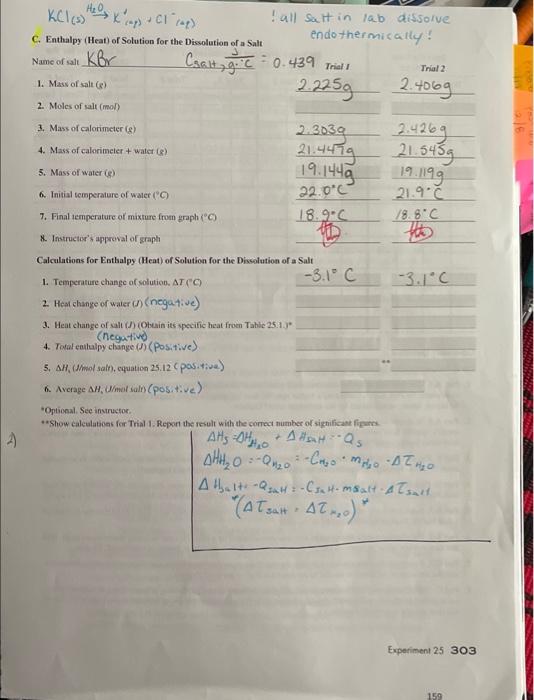 KCl(s) H₂O→ K⁺(aq) + Cl⁻(aq)
! all salt in lab dissolve endothermically!
C. Enthalpy (Heat) of Solution for the Dissolution of a Salt
Name of salt KBr Csalt, J/g·°C = 0.439 Trial 1 Trial 2
1. Mass of salt (g) 2.225g 2.406g
2. Moles of salt (mol)
3. Mass of calorimeter (g) 2.303g 2.426g
4. Mass of calorimeter + water (g) 21.447g 21.545g
5. Mass of water (g) 19.144g 19.119g
6. Initial temperature of water (°C) 22.0°C 21.9°C
7. Final temperature of mixture from graph (°C) 18.9°C 18.8°C
8. Instructor's approval of graph
Calculations for Enthalpy (Heat) of Solution for the Dissolution of a Salt
1. Temperature change of solution, ΔT (°C) -3.1°C -3.1°C
2. Heat change of water (J) (negative)
3. Heat change of salt (J) (Obtain its specific heat from Table 25.1.)*
(negative)
4. Total enthalpy change (J) (Positive)
5. ΔHs (J/mol salt), equation 25.12 (positive) **
6. Average ΔHs (J/mol salt) (positive)
*Optional. See instructor.
**Show calculations for Trial 1. Report the result with the correct number of significant figures.
2)
ΔHs = ΔHH₂O + ΔHsalt = -Qs
ΔHH₂O = -QH₂O = -CH₂O · mH₂O · ΔTH₂O
ΔHsalt = -Qsalt = -Csalt · msalt · ΔTsalt
*(ΔTsalt = ΔTH₂O)*
Experiment 25 303
159